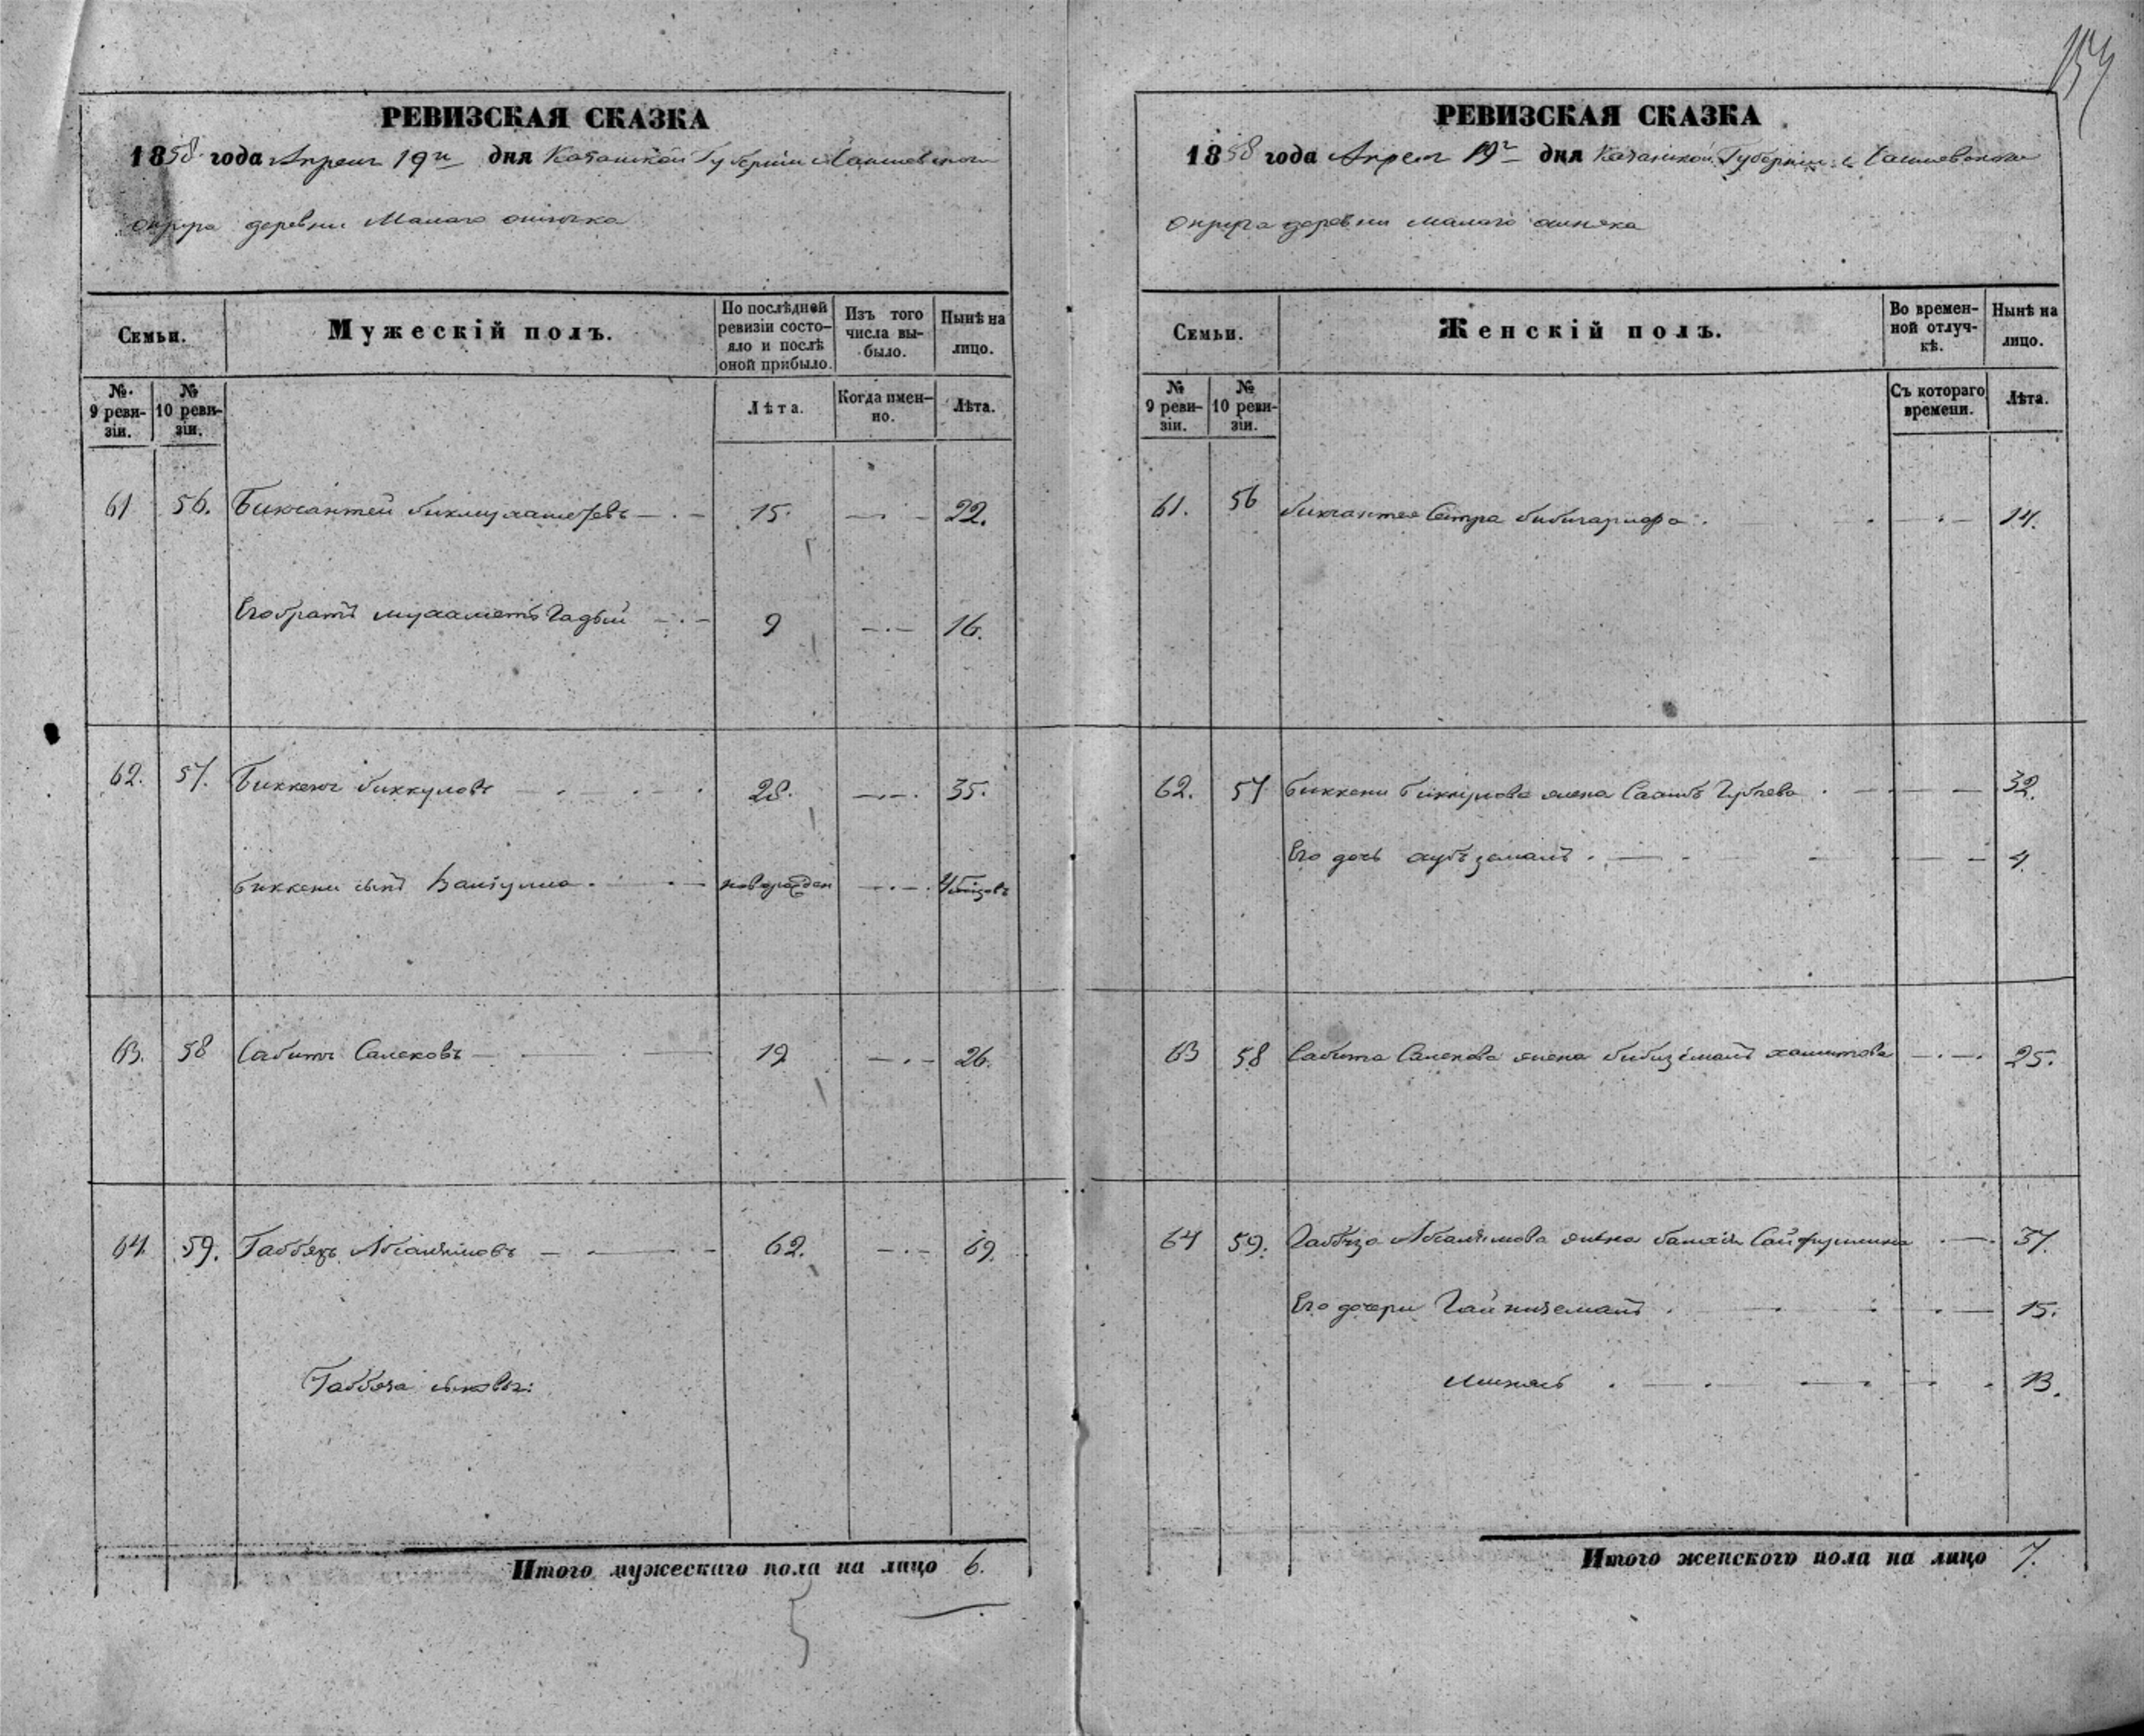 РЕВИЗСКАЯ СКАЗКА
1858 года Апреля 19 дня Казанской Губернiи Лаишевского
округа деревни Малаго ошняка
Семьи.
Мужескiй полъ.
По послѣдней ревизiи состо-
яло и послѣ
оной прибыло.
Изъ того
числа вы-
было.
Нынѣ на
лицо.
№
9 реви-
зiи.
№
10 реви-
зiи.
Лѣта.
Когда имен-
но.
Лѣта.
61 56. Бикчантей бикмухаметевъ 15. 22.
Его братъ мухаметъ Гадый 9 16.
62. 57. Биккеня биккуловъ 28. 35.
биккени сынъ Валiулла новорожден
63. 58 Сабитъ Салеховъ 19 26.
64 59. Габбязъ Абсалямовъ 62. 69.
Габбяза сыновья:
Итого мужескаго пола на лицо 6.
5
РЕВИЗСКАЯ СКАЗКА
1858 года Апреля 19 дня Казанской Губернiи Лаишевского
округа деревни малаго ошняка
Семьи.
Женскiй полъ.
Во времен-
ной отлуч-
кѣ.
Нынѣ на
лицо.
№
9 реви-
зiи.
№
10 реви-
зiи.
Съ котораго
времени.
Лѣта.
61. 56 бикчантея Сестра бибигарифа 14.
62. 57 биккени биккулова жена 32.
Его дочь 4.
63 58 Сабита Салехова жена бибиземалъ хамитова 25.
64 59. Габбяза Абсалямова жена Сайфуллина 37.
Его дочери Гайниземалъ 15.
13.
Итого женского пола на лицо 7.